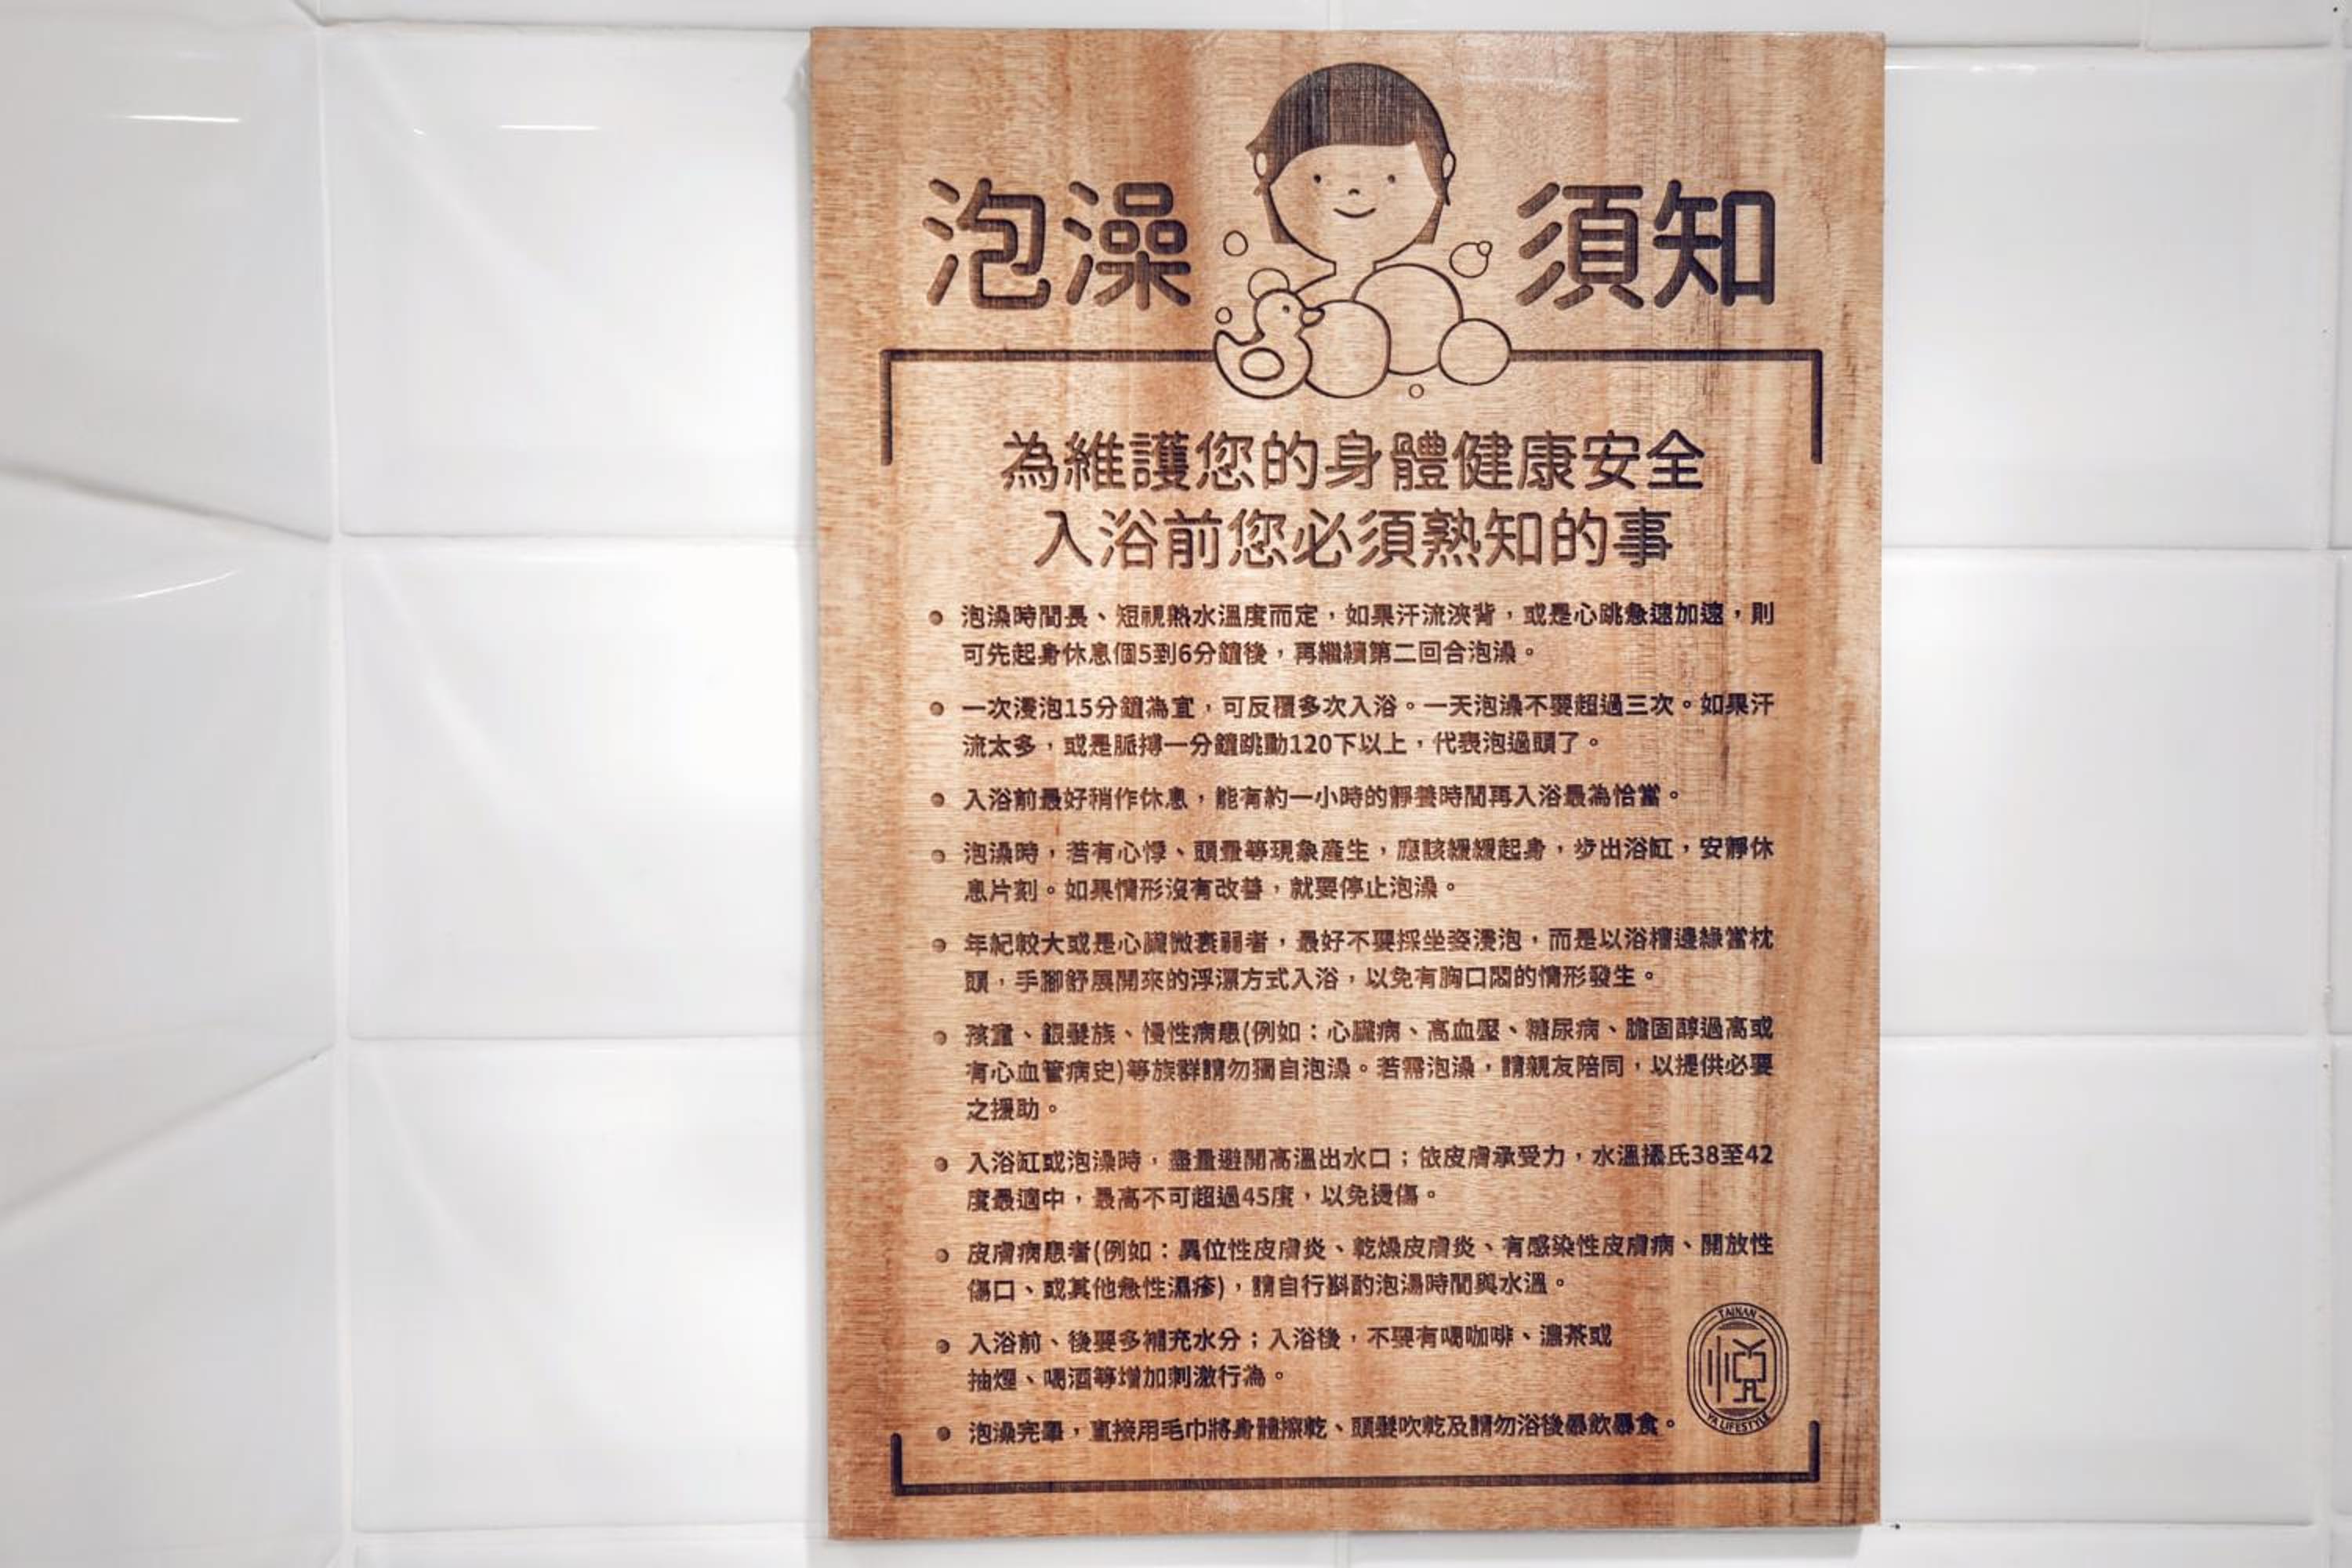 泡澡須知
為維護您的身體健康安全
入浴前您必須熟知的事
泡澡時間長、短視熱水溫度而定，如果汗流浹背，或是心跳急速加速，則
可先起身休息個5到6分鐘後，再繼續第二回合泡澡。
一次浸泡15分鐘為宜，可反覆多次入浴。一天泡澡不要超過三次。如果汗
流太多，或是脈搏一分鐘跳動120下以上，代表泡過頭了。
入浴前最好稍作休息，能有約一小時的靜養時間再入浴最為恰當。
泡澡時，若有心悸、頭暈等現象產生，應該緩緩起身，步出浴缸，安靜休
息片刻。如果情形沒有改善，就要停止泡澡。
年紀較大或是心臟微衰弱者，最好不要採坐姿浸泡，而是以浴槽邊緣當枕
頭，手腳舒展開來的浮漂方式入浴，以免有胸口悶的情形發生。
孩童、銀髮族、慢性病患(例如：心臟病、高血壓、糖尿病、膽固醇過高或
有心血管病史)等族群請勿獨自泡澡。若需泡澡，請親友陪同，以提供必要
之援助。
入浴缸或泡澡時，盡量避開高溫出水口；依皮膚承受力，水溫攝氏38至42
度最適中，最高不可超過45度，以免燙傷。
皮膚病患者(例如：異位性皮膚炎、乾燥皮膚炎、有感染性皮膚病、開放性
傷口、或其他急性濕疹)，請自行斟酌泡湯時間與水溫。
入浴前、後要多補充水分；入浴後，不要有喝咖啡、濃茶或
抽煙、喝酒等增加刺激行為。
泡澡完畢，直接用毛巾將身體擦乾、頭髮吹乾及請勿浴後暴飲暴食。
TAINAN
悅
YA LIFESTYLE